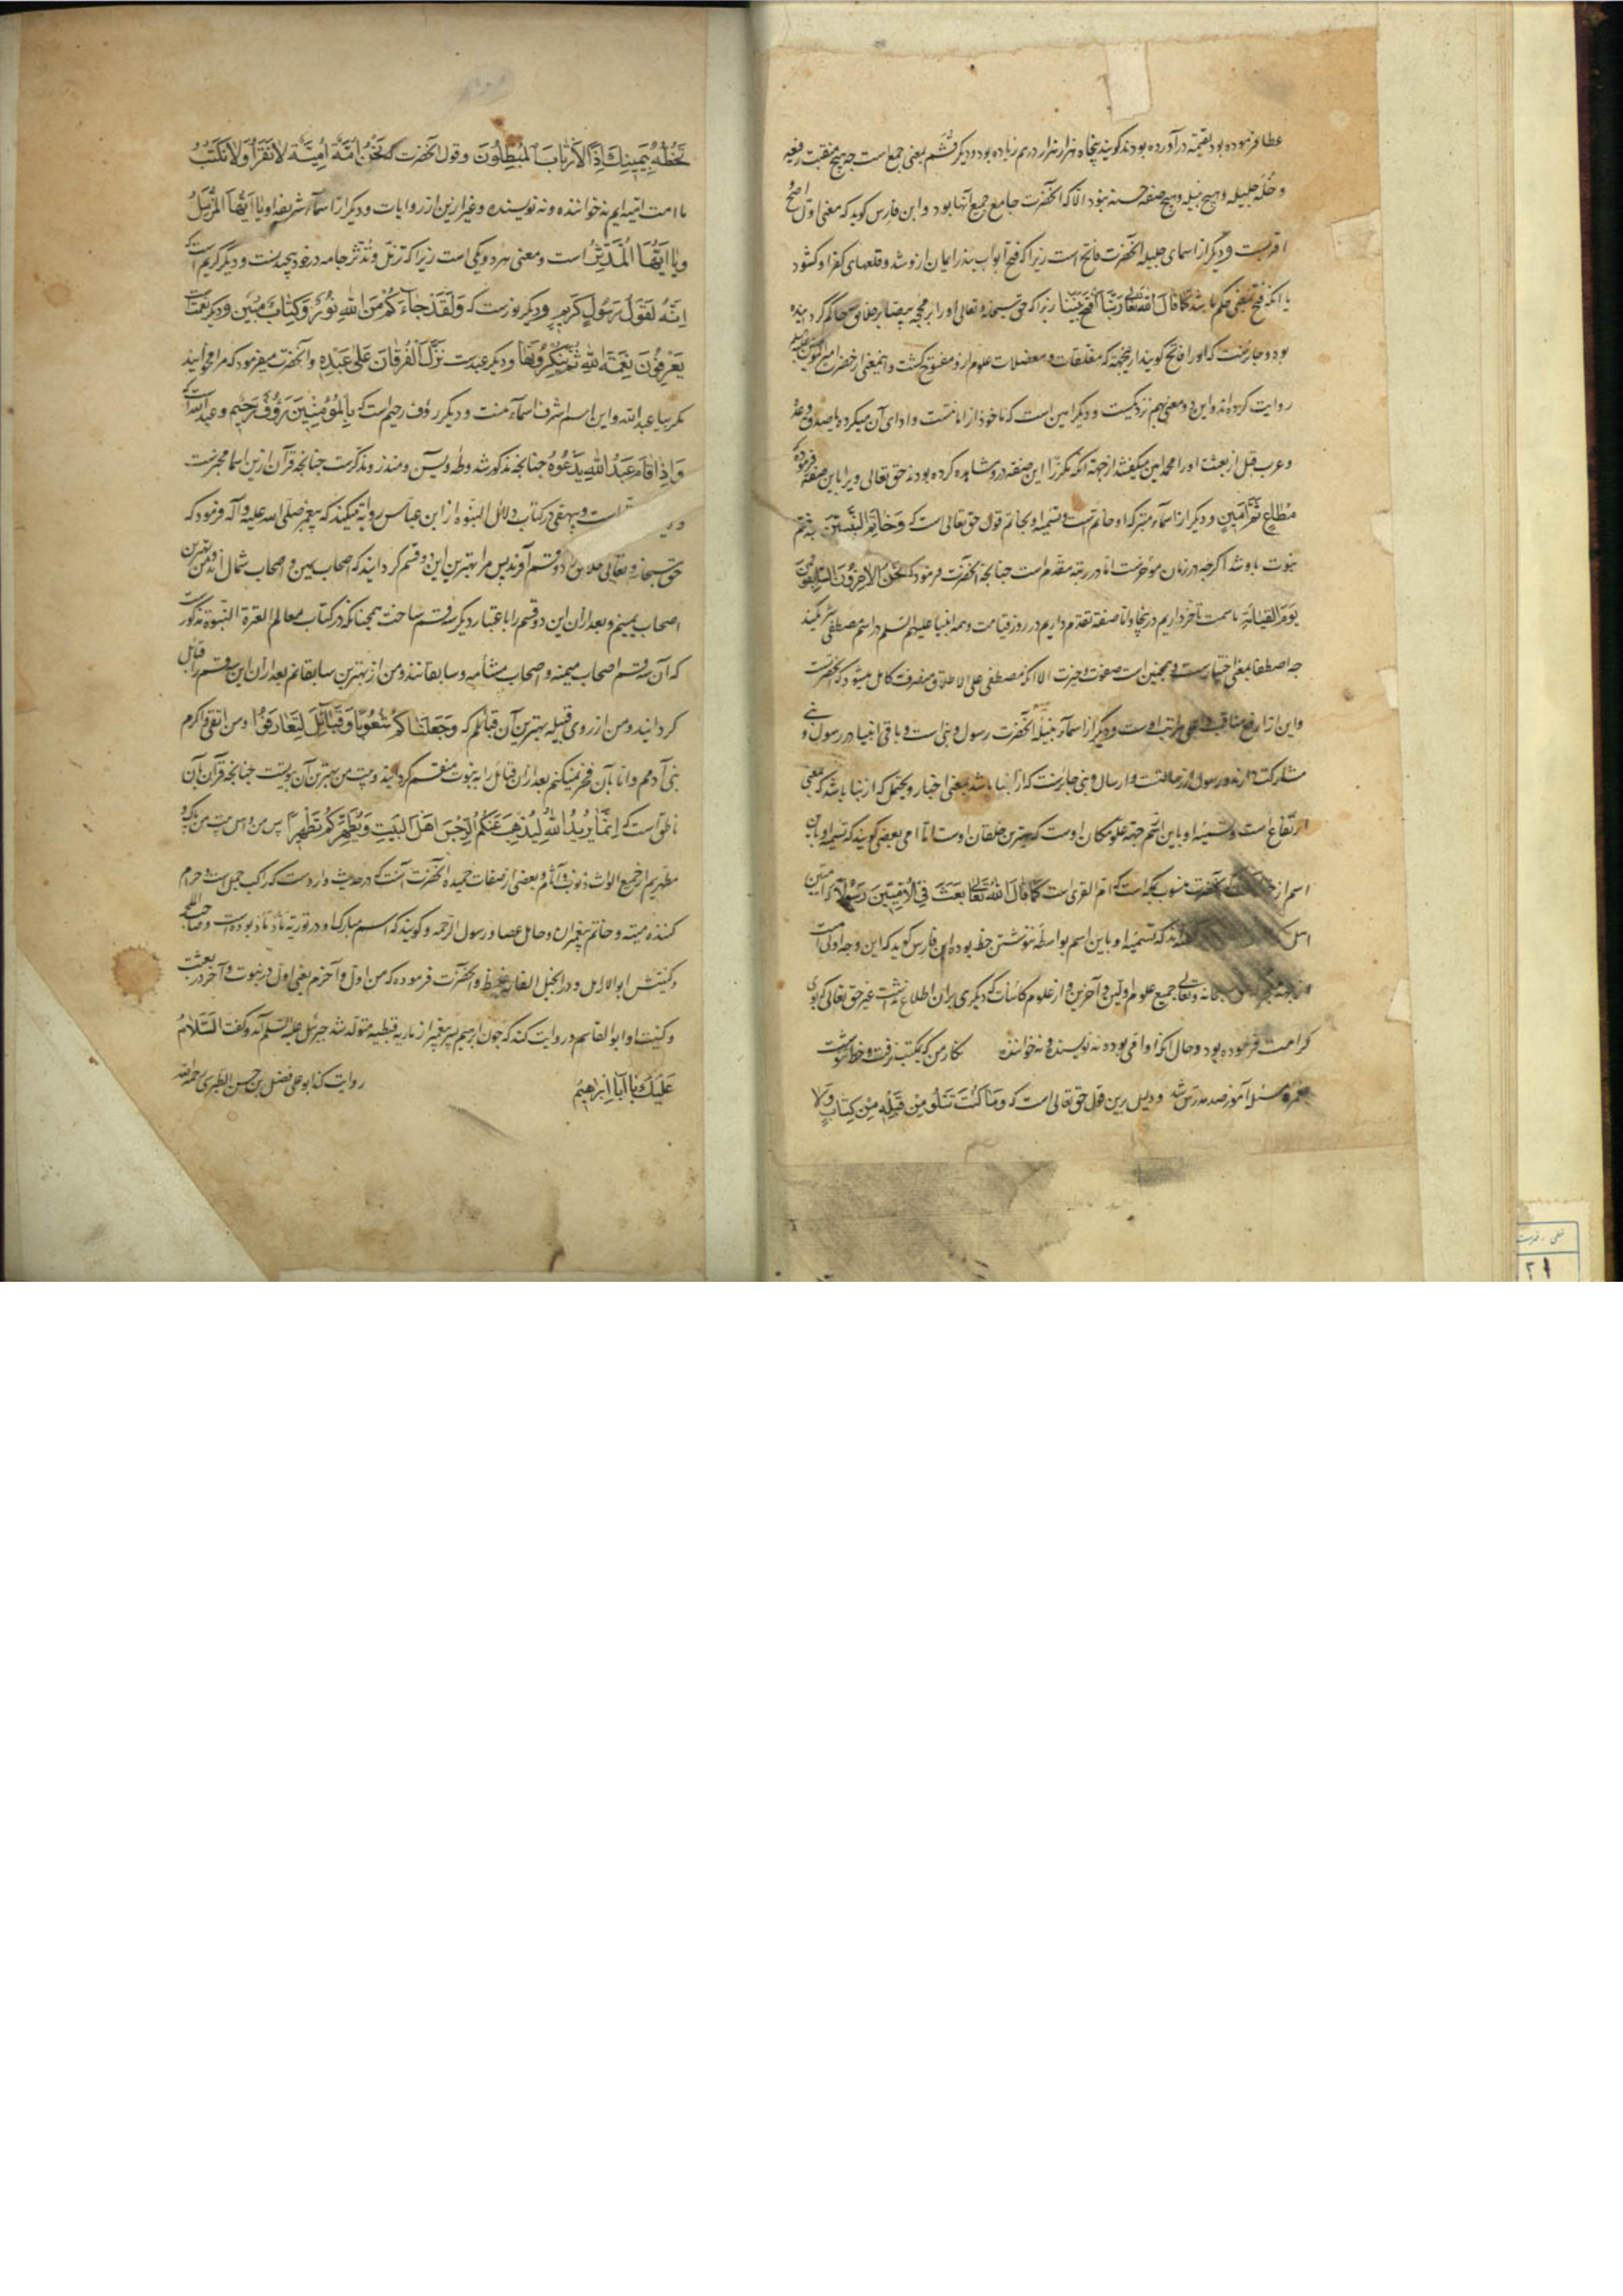 عطا فرموده بود بقیمة در آورده بودند گویند پنجاه هزار هزار درهم زیاده بود و دیگر قُثَم یعنی جمع است چه هیچ منقبت رفیعه
و خُلّه جلیله و هیچ نبیله و هیچ صفه حسنه نبود الا که آنحضرت جامع جمیع آنها بود و ابن فارس کوید که معنی اول اصح
اقربست و دیگر از اسمای جلیله آنحضرت فاتح است زیرا که فتح ابواب ایمان ازو شد و قلعهای کفر او کشود
یا آنکه فتح بمعنی حکم باشد کما قال الله تعالی رَبَّنَا افْتَحْ بَيْنَنَا زیرا که حق سبحانه و تعالی او را بر خلایق حاکم کردانیده
بود و جایزست که او را فاتح کویند از یجهة که مغلقات و معضلات علوم ازو مفتوح کشت و اینمعنی از حضرت امیر المؤمنین
روایت کرده اند و این دو معنی بهم نزدیکست و دیگر امین است که ماخوذ از امانتست و ادای آن میکرده با صدق وعد
و عرب قبل از بعثت او را محمد امین میکفتند از جهة آنکه مکررا این صفه درو مشاهده کرده بودند حق تعالی ویرا باین صفة فرموده که
مُطَاعٍ ثَمَّ اَمِينٍ و دیگر از اسماء متبرکه او خاتم است و تسمیه او بخاتم قول حق تعالی است که وَ خَاتَمَ النَّبِيّنَ چه ختم
نبوت باو شد اگرچه در زمان مؤخرست اما در رتبه مقدم است چنانچه آنحضرت فرمود که نَحْنُ الاخِرُونَ السَّابِقُونَ
يَوْمَ القِيَامَةِ ما سمت تاخر داریم در نجا و اما صفه تقدم داریم در روز قیامت و همه انبیا علیهم السلم در اسم مصطفی شریکند
چه اصطفا بمعنی اختیارست و همچنین است صفوت و خیرت الا آنکه مصطفی علی الاطلاق منصرف کامل میشود که آنحضرتست
و این از ارفع مناقب و اعلی مراتب اوست و دیگر از اسماء نبیله آنحضرت رسول و نبی است و باقی انبیا در رسول و نبی
مشارکت دارند و رسول از رسالتست و ارسال و نبی جایزست که از انبا باشد بمعنی اخبار و یحتمل که از نبا باشد که بمعنی
ارتفاع است و تسمیه او باین اسم جهة علو مکان اوست که بهترین خلقان اوست اما امی بعضی کویند که تسمیه او باین
اسم از آنحضرت منسوب بمکه است که ام القری است کَمَا قَالَ اللهُ تَعَالی بَعَثَ فِي الْاُمِيّينَ رَسُولًا که امیین
اند که تسمیه او باین اسم بواسطه ننوشتن خط بوده ابن فارس کوید که این وجه اولی است
و تعالی جمیع علوم اولین و آخرین و از علوم کائنات که دیگری بران اطلاع نداشت غیر حق تعالی که بوی
کرامت فرموده بود و حال آنکه او امی بوده نه نویسنده و نه خواننده نکار من که بمکتب نرفت و خط ننوشت
بغمزه مسئله آموز صد مدرس شد و دلیل برین قول حق تعالی است که وَ مَا كُنْتَ تَتْلُو مِنْ قَبْلِهِ مِنْ كِتَابٍ وَلَا
تَخُطُّهُ بِيَمِينِكَ اِذًا لَارْتَابَ الْمُبْطِلُونَ و قول آنحضرت که نَحْنُ اُمَّةٌ اُمِيَّة لَا نَقْرَأُ وَ لَا نَكْتُبُ
ما امت امیه ایم نه خواننده و نه نویسنده و غیر ازین از روایات و دیگر از اسماء شریفه او يَا اَيُّهَا الْمُزَّمِّلُ
وَيَا اَيُّهَا الْمُدَّثِّرُ است و معنی هر دو یکی است زیرا که تزمل و تدثر جامه در خود پیچیدنست و دیگر کریم است که
اِنَّهُ لَقَوْلُ رَسُولٍ كَرِيمٍ و دیگر نورست که وَ لَقَدْ جَاءَكُمْ مِنَ اللهِ نُورٌ وَ كِتَابٌ مُبِين و دیگر نعمتست
يَعْرِفُونَ نِعْمَةَ اللهِ ثُمَّ يُنْكِرُونَهَا و دیگر عبدست نَزَّلَ الْفُرْقَانَ عَلى عَبْدِهِ و آنحضرت میفرمود که مرا مخوانید
مکر بیا عبد الله و این اسم اشرف اسماء منست و دیگر رؤف رحیم است که بِالْمُؤْمِنِينَ رَؤُفٌ رَحِيم و عبد الله است که
وَ اِذَا قَامَ عَبْدُ اللهِ يَدْعُوهُ چنانچه مذکور شد و طه و یس و منذر و مذکرست چنانچه قرآن ازین اسما مخبرست
است و بیهقی در کتاب دلائل النبوه از ابن عباس روایة میکند که پیغمبر صلی الله علیه و آله فرمود که
حق سبحانه و تعالی خلایق را دو قسم آفرید پس مرا بهترین این دو قسم کردانید که اصحاب یمین و اصحاب شمال اند و من بهترین
اصحاب یمینم و بعد ازان این دو قسم را باعتبار دیگر سه قسم ساخت همچنانکه در کتاب معالم العترة النبوة مذکورست
که آن سه قسم اصحاب میمنه و اصحاب مشأمه و سابقانند و من از بهترین سابقانم بعد ازان این سه قسم را قبائل
کردانید و من از روی قبیله بهترین آن قبائلم که وَ جَعَلْنَاكُمْ شُعُوبًا وَ قَبَائِلَ لِتَعَارَفُوا و من اتقی و اکرم
بنی آدمم و اما بآن فخر نمیکنم بعد ازان قبائل را به بیوت منقسم کردانید و بیت من بهترین آن بیوتست چنانچه قرآن بآن
ناطق است که اِنَّمَا يُرِيدُ اللهُ لِيُذْهِبَ عَنْكُمُ الرِّجْسَ اَهْلَ الْبَيْتِ وَ يُطَهِّرَكُمْ تَطْهِيراً پس من و اهل بیت من پاک و
مطهریم از جمیع الواث ذنوب و آثام و بعضی از صفات حمیده آنحضرت آنست که در حدیث واردست که راکب جمل است و حرام
کننده میته و خاتم پیغمبران و حامل عصا و رسول الرحمه و کویند که اسم مبارک او در توریة ماد ماد بوده است و صاحب
و کنیتش ابو الارامل و در انجیل الفارقلیط و آنحضرت فرموده که من اول و آخرم یعنی اول در نبوت و آخر در بعثت
و کنیت او ابو القاسم و روایت کنند که چون ابرهیم پسر پیغمبر از ماریه قبطیه متولد شد جبرئیل علیه السلم آمد و کفت السَّلَامُ
عَلَيْكَ يَا اَبَا اِبْرَاهِيمُ روایت کند ابو علی فضل بن حسن الطبری رحمه الله